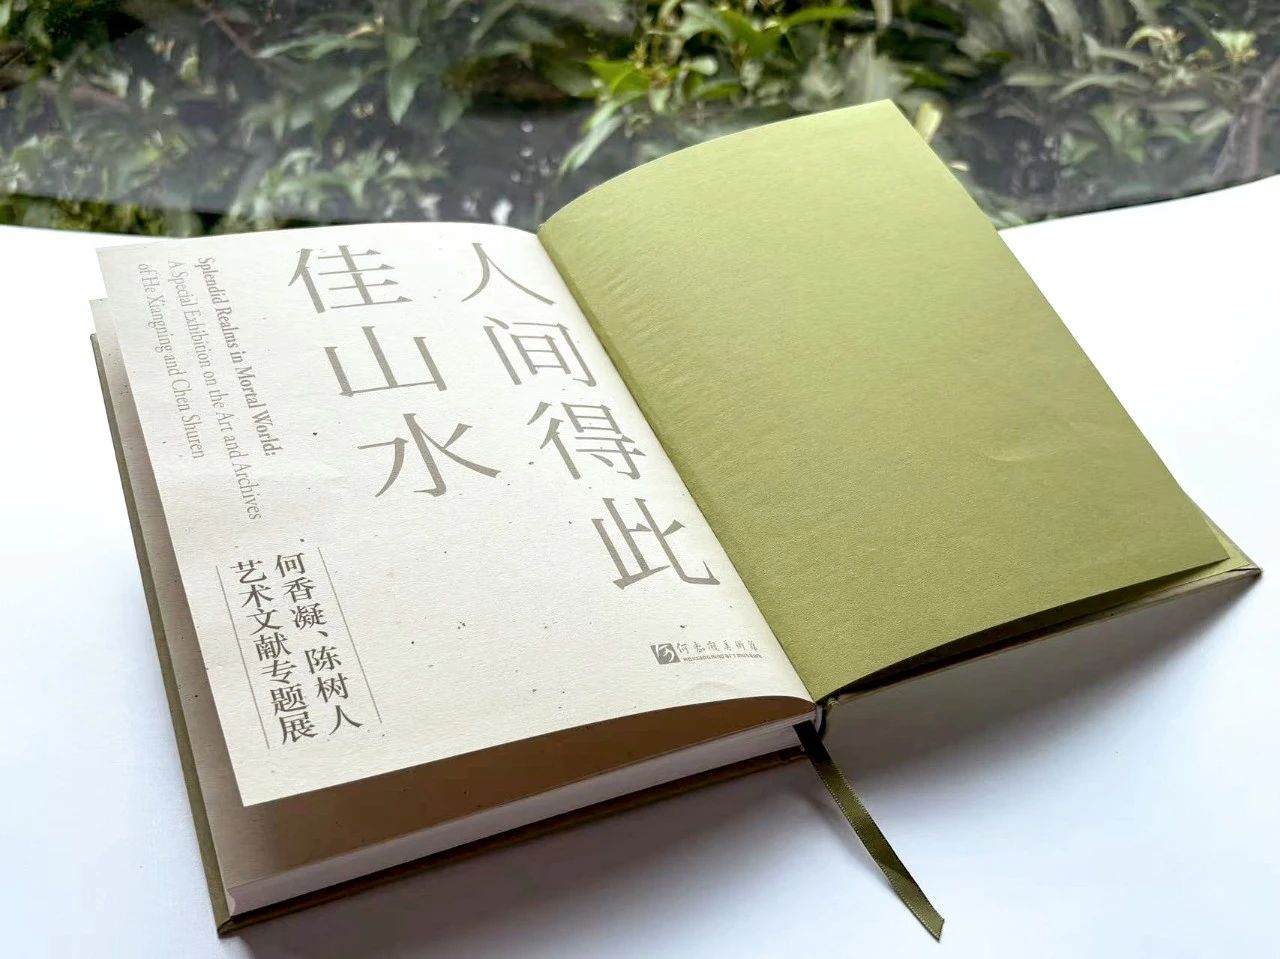 人间得此
佳山水
Splendid Realms in Mortal World:
A Special Exhibition on the Art and Archives
of He Xiangning and Chen Shuren
何香凝、陈树人
艺术文献专题展
何香凝美術館
HE XIANGNING ART MUSEUM